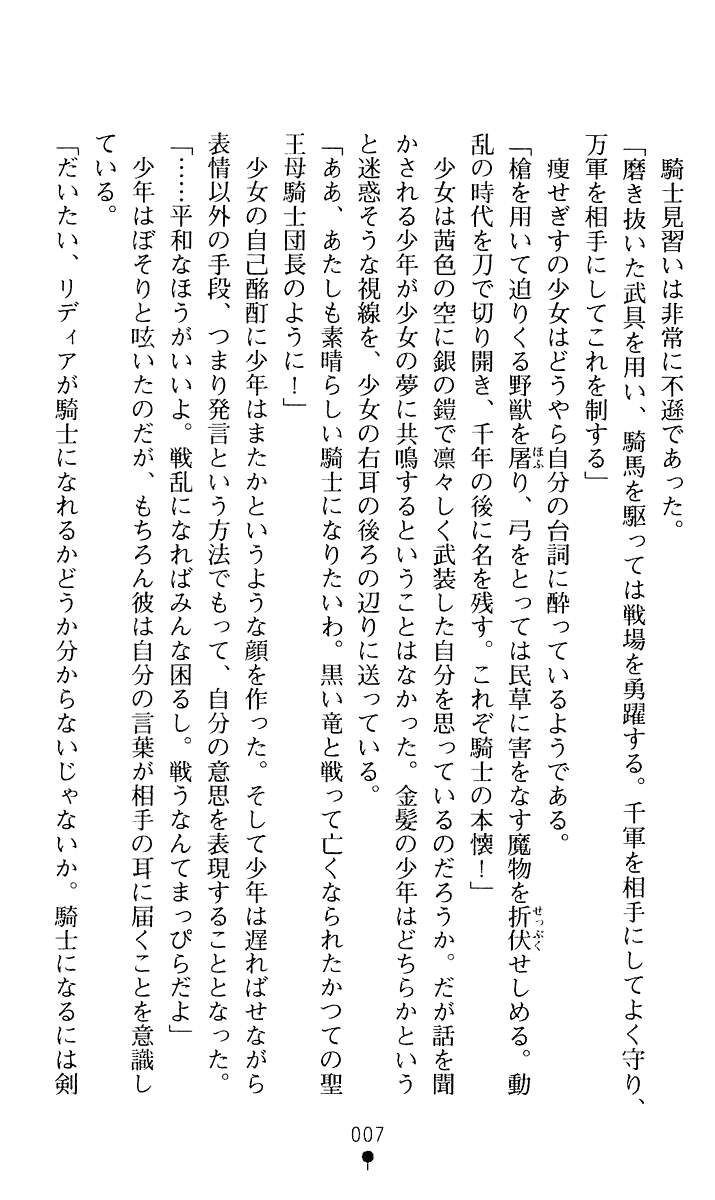 騎士見習いは非常に不遜であった。
「磨き抜いた武具を用い、騎馬を駆っては戦場を勇躍する。千軍を相手にしてよく守り、
万軍を相手にしてこれを制する」
痩せぎすの少女はどうやら自分の台詞に酔っているようである。
「槍を用いて迫りくる野獣を屠り、弓をとっては民草に害をなす魔物を折伏せしめる。動
乱の時代を刀で切り開き、千年の後に名を残す。これぞ騎士の本懐！」
少女は茜色の空に銀の鎧で凛々しく武装した自分を思っているのだろうか。だが話を聞
かされる少年が少女の夢に共鳴するということはなかった。金髪の少年はどちらかという
と迷惑そうな視線を、少女の右耳の後ろの辺りに送っている。
「ああ、あたしも素晴らしい騎士になりたいわ。黒い竜と戦って亡くなられたかつての聖
王母騎士団長のように！」
少女の自己酩酊に少年はまたかというような顔を作った。そして少年は遅ればせながら
表情以外の手段、つまり発言という方法でもって、自分の意思を表現することとなった。
「……平和なほうがいいよ。戦乱になればみんな困るし。戦うなんてまっぴらだよ」
少年はぼそりと呟いたのだが、もちろん彼は自分の言葉が相手の耳に届くことを意識し
ている。
「だいたい、リディアが騎士になれるかどうか分からないじゃないか。騎士になるには剣
ほふ
せっぷく
007